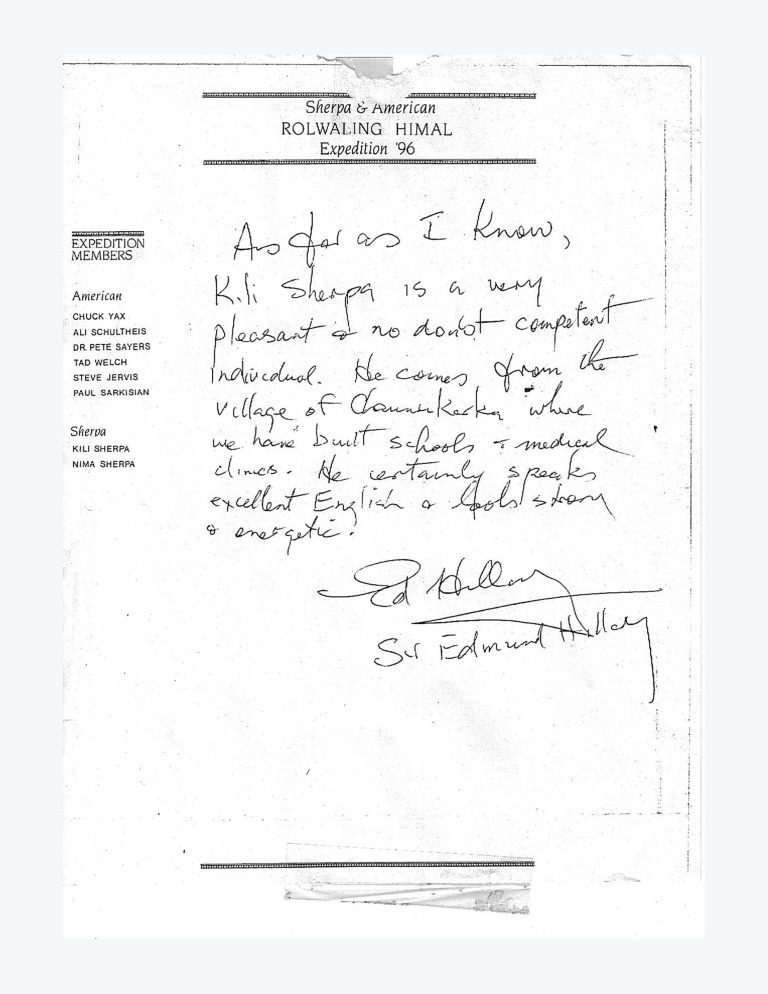 Sherpa & American
ROLWALING HIMAL
Expedition '96
EXPEDITION
MEMBERS
American
CHUCK YAX
ALI SCHULTHEIS
DR. PETE SAYERS
TAD WELCH
STEVE JERVIS
PAUL SARKISIAN
Sherpa
KILI SHERPA
NIMA SHERPA
As far as I know,
Kili Sherpa is a very
pleasant & no doubt competent
individual. He comes from the
village of Chaunrikarka where
we have built schools & medical
clinics. He certainly speaks
excellent English & looks strong
& energetic.
Ed Hillary
Sir Edmund Hillary